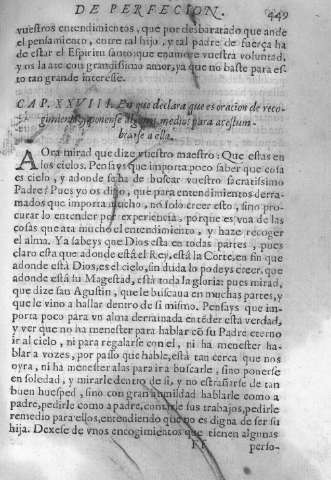 DE PERFECION. 449
vuestros entendimientos, que por desbaratado que ande
el pensamiento, entre tal hijo, y tal padre de fuerça ha
de estar el Espiritu santo, que enamore vuestra voluntad,
y os la ate con grandissimo amor, ya que no baste para es-
to tan grande interesse.
CAP. XXVIII. En que declara que es oracion de reco-
gimiento, y ponense algunos medios para acostum-
brarse a ella.
AOra mirad que dize vuestro maestro: Que estas en
los cielos. Pensays que importa poco saber que cosa
es cielo, y adonde se ha de buscar vuestro sacratissimo
Padre? Pues yo os digo, que para entendimientos derra-
mados que importa mucho, no solo creer esto, sino pro-
curar lo entender por experiencia, porque es vna de las
cosas que ata mucho el entendimiento, y haze recoger
el alma. Ya sabeys que Dios esta en todas partes, pues
claro esta que adonde está el Rey, está la Corte, en fin que
adonde está Dios, es el cielo, sin duda lo podeys creer, que
adonde está su Magestad, está toda la gloria: pues mirad,
que dize san Agustin, que le buscaua en muchas partes, y
que le vino a hallar dentro de si mismo. Pensays que im-
porta poco para vn alma derramada entēder está verdad,
y ver que no ha menester para hablar cō su Padre eterno
ir al cielo, ni para regalarse con el, ni ha menester ha-
blar a vozes, por passo que hable, está tan cerca que nos
oyra, ni ha menester alas para ir a buscarle, sino ponerse
en soledad, y mirarle dentro de si, y no estrañarse de tan
buen huesped, sino con gran humildad hablarle como a
padre, pedirle como a padre, contarle sus trabajos, pedirle
remedio para ellos, entendiendo que no es digna de ser su
hija. Dexese de vnos encogimientos que tienen algunas
Ff perso-